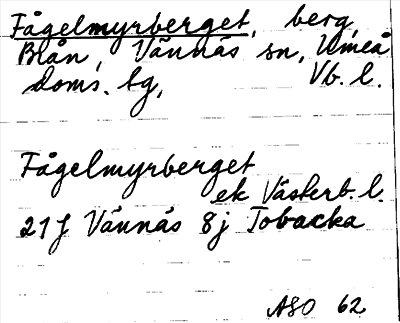 Fågelmyrberget, berg,
Brån, Vännäs sn, Umeå
doms. tg, Vb. l.
Fågelmyrberget
ek Västerb. l.
21 J Vännäs 8j Tobacka
ASO 62